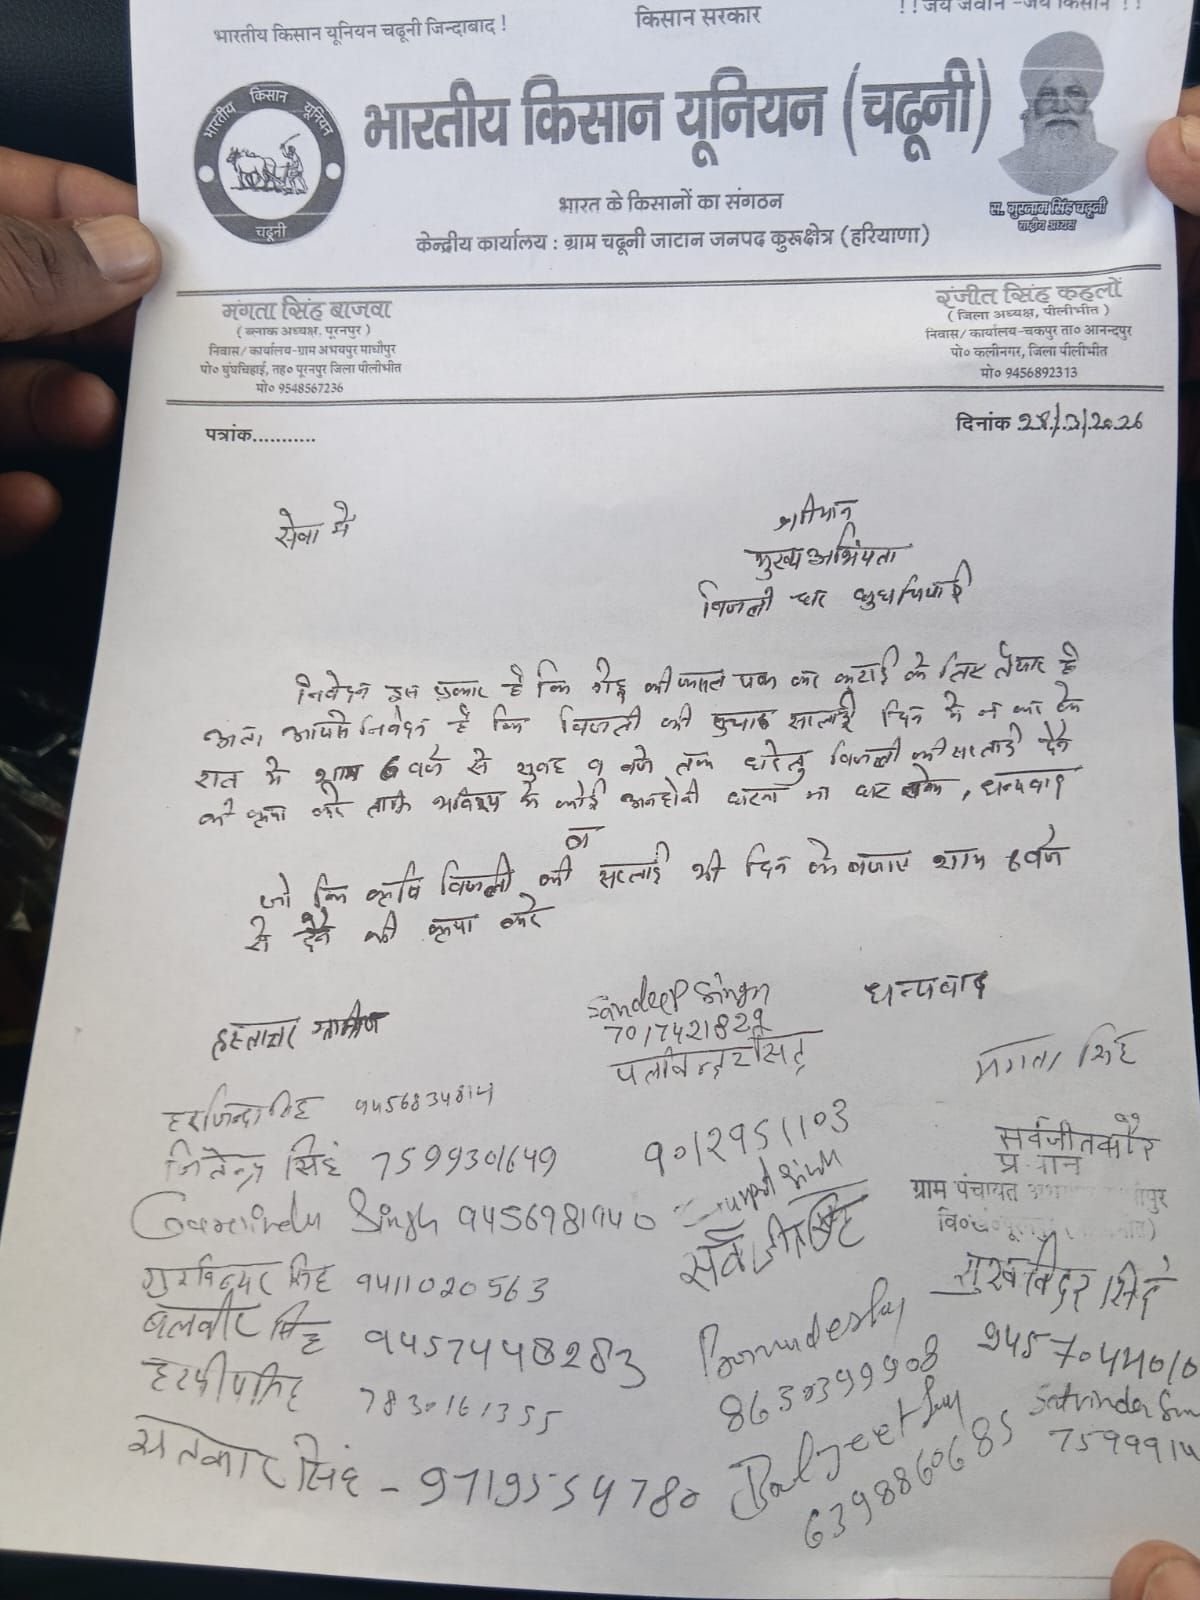 भारतीय किसान यूनियन चढूनी जिन्दाबाद !
किसान सरकार
!! जय जवान -जय किसान !!
भारतीय किसान यूनियन
चढूनी
भारतीय किसान यूनियन (चढूनी)
स. गुरनाम सिंह चढूनी
राष्ट्रीय अध्यक्ष
भारत के किसानों का संगठन
केन्द्रीय कार्यालय : ग्राम चढूनी जाटान जनपद कुरूक्षेत्र (हरियाणा)
मंगता सिंह बाजवा
( ब्लाक अध्यक्ष, पूरनपुर )
निवास/ कार्यालय-ग्राम अभयपुर माधौपुर
पो० घुंघचिहाई, तह० पूरनपुर जिला पीलीभीत
मो० 9548567236
रंजीत सिंह कहलों
( जिला अध्यक्ष, पीलीभीत )
निवास/ कार्यालय-चकपुर ता० आनन्दपुर
पो० कलीनगर, जिला पीलीभीत
मो० 9456892313
पत्रांक...........
दिनांक 28/3/2026
सेवा मे
श्रीमान
मुख्य अभियंता
बिजली घर
निवेदन इस प्रकार है कि गेहू की फसल पक कर कटाई के लिए तैयार है
अतः आपसे निवेदन है कि बिजली की सप्लाई दिन मे न कर के
रात मे शाम 6 बजे से सुबह 9 बजे तक घरेलु बिजली की सप्लाई देने
की कृपा करे ताकि भविष्य मे कोई अनहोनी घटना ना घट सके, धन्यवाद
जो कि कृषि बिजली की सप्लाई भी दिन के बजाए शाम 6 बजे
से देने की कृपा करे
धन्यवाद
हस्ताक्षर ग्रामीण
Sandeep Singh
7017421829
पलविन्दर सिंह
मंगता सिंह
हरजिन्दर सिंह 9456834814
जितेन्द्र सिंह 7599301649
9012951103
सर्वजीत कौर
प्रधान
ग्राम पंचायत
Singh 9456981940
सर्वजीत सिंह
गुरविन्दर सिंह 9411020563
सुखविंदर सिंह
9457044010
बलवीर सिंह 9457448283
8630399908
7830161355
Satvinder
7599914
सतकार सिंह - 9719554780
Baljeet
6398860685